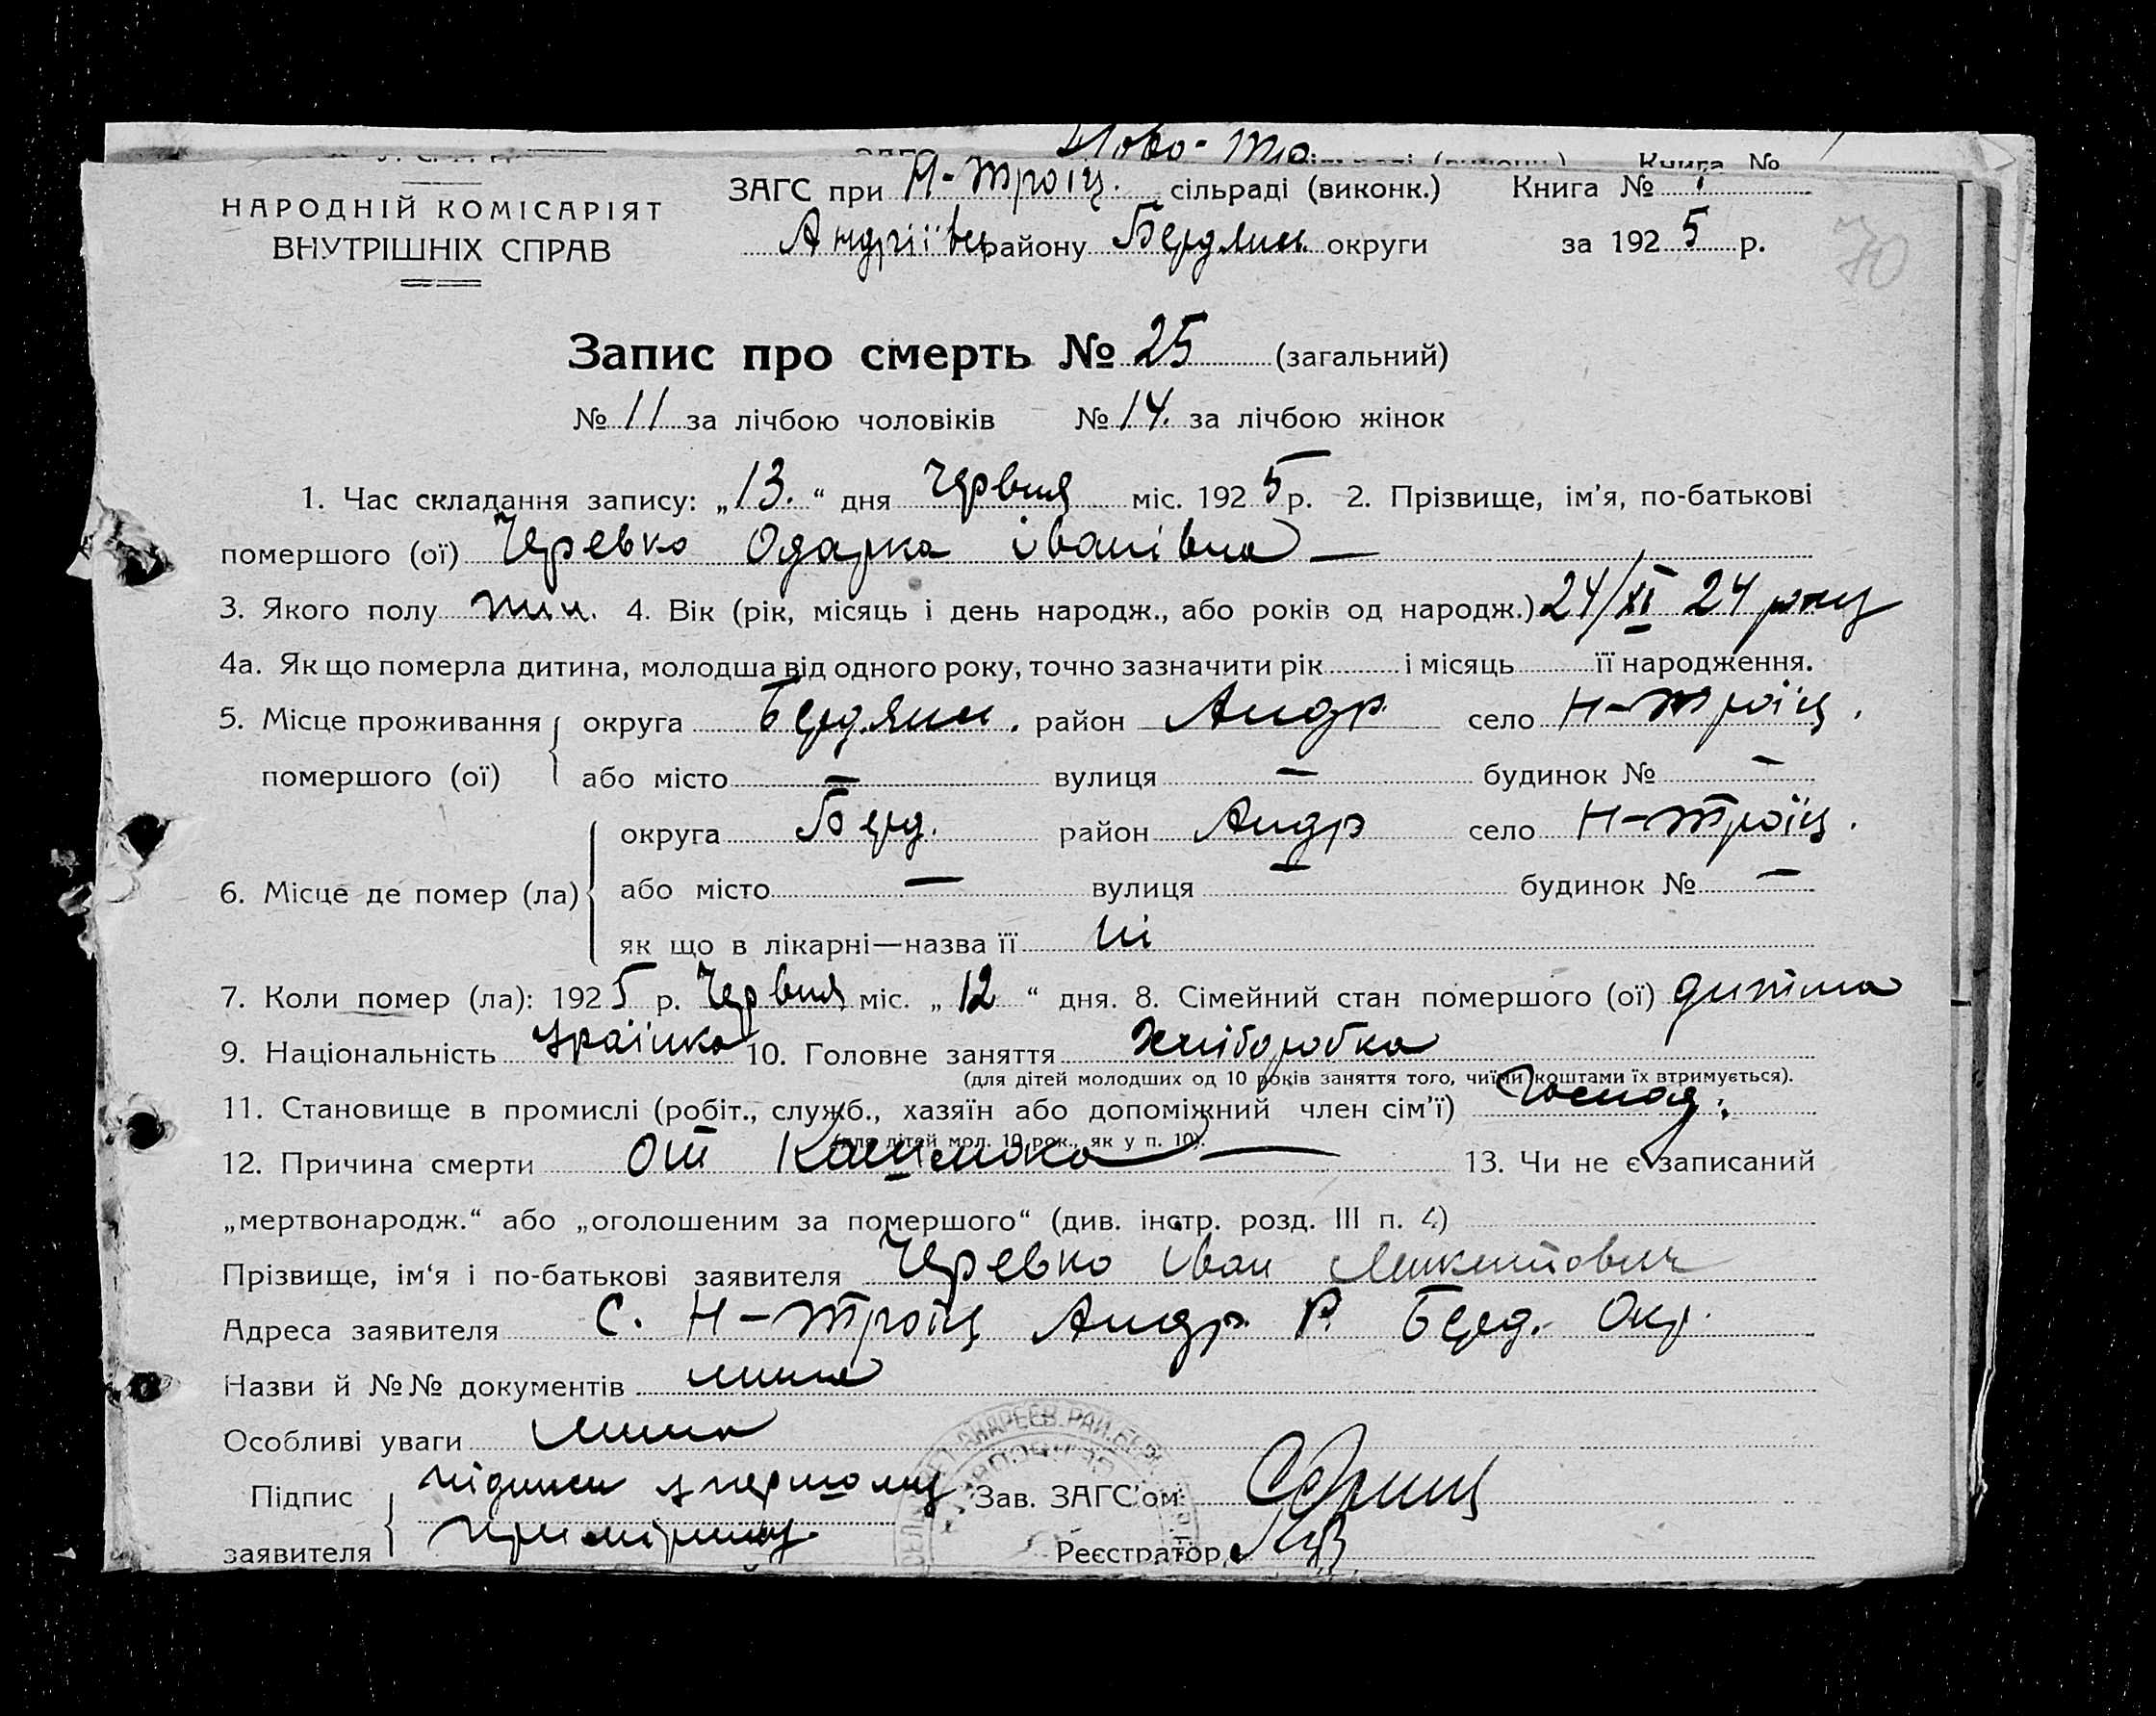 Ново-Тро
Книга №
НАРОДНІЙ КОМІСАРІЯТ
ВНУТРІШНІХ СПРАВ
ЗАГС при Н-Троіц. сільраді (виконк.) Книга № 1
Андріївц району Бердянс. округи за 1925 р.
70
Запис про смерть № 25 (загальний)
№ 11 за лічбою чоловіків № 14. за лічбою жінок
1. Час складання запису: „13.“ дня червня міс. 1925 р. 2. Прізвище, ім’я, по-батькові
помершого (ої) Черевко Одарка іванівна —
3. Якого полу жін. 4. Вік (рік, місяць і день народж., або років од народж.) 24/XI 24 року
4а. Як що померла дитина, молодша від одного року, точно зазначити рік і місяць її народження.
5. Місце проживання округа Бердянс. район Андр село Н-Троїц.
помершого (ої) або місто — вулиця — будинок № —
округа Берд. район Андр село Н-Троїц.
6. Місце де помер (ла) або місто — вулиця — будинок № —
як що в лікарні—назва її ні
7. Коли помер (ла): 1925 р. Червня міс. „12“ дня. 8. Сімейний стан помершого (ої) дитина
9. Національність Украінка 10. Головне заняття Хліборобка
(для дітей молодших од 10 років заняття того, чиїми коштами їх втримується).
11. Становище в промислі (робіт., служб., хазяїн або допоміжний член сім’ї) Господ.
(для дітей мол. 10 рок., як у п. 10).
12. Причина смерти От Кашлюка — 13. Чи не є записаний
„мертвонародж.“ або „оголошеним за помершого“ (див. інстр. розд. III п. 4)
Прізвище, ім‘я і по-батькові заявителя Черевко Іван Микитович
Адреса заявителя С. Н-Троїц Андр Р. Берд. Окр.
Назви й №№ документів нима
Особливі уваги нима
Підпис підписи у першому Зав. ЗАГС’ом
заявителя примірнику Реєстратор